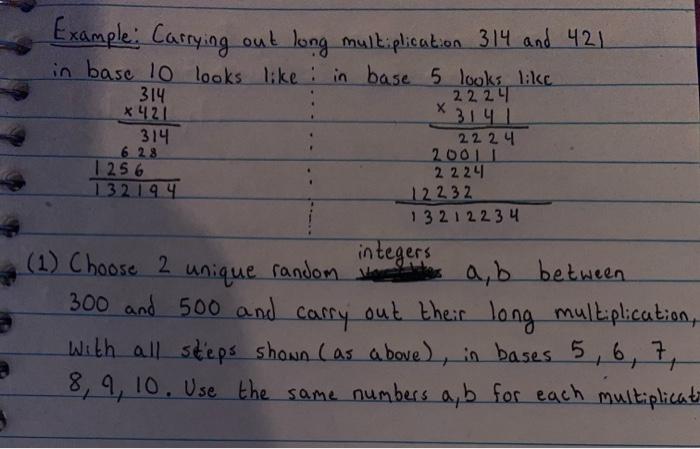 Example: Carrying out long multiplication 314 and 421
in base 10 looks like : in base 5 looks like
314 2224
x 421 x 3141
314 2224
628 20011
1256 2224
132194 12232
13212234
integers
(1) Choose 2 unique random a,b between
300 and 500 and carry out their long multiplication,
With all steps shown (as above), in bases 5, 6, 7,
8, 9, 10. Use the same numbers a,b for each multiplicati